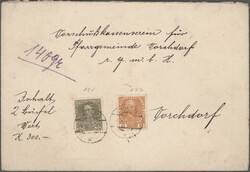 Vorschußkassenverein für
Pfarrgemeinde Vorchdorf
r. G. m. b. H.
140 gr
Inhalt
2 Büchel
Wert
K 300.—
Vorchdorf